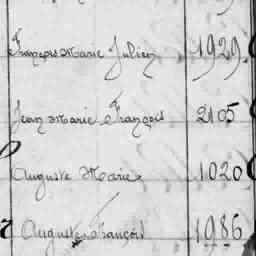 François Marie Julien 1929
Jean Marie François 2105
Auguste Marie 1020
Auguste François 1986